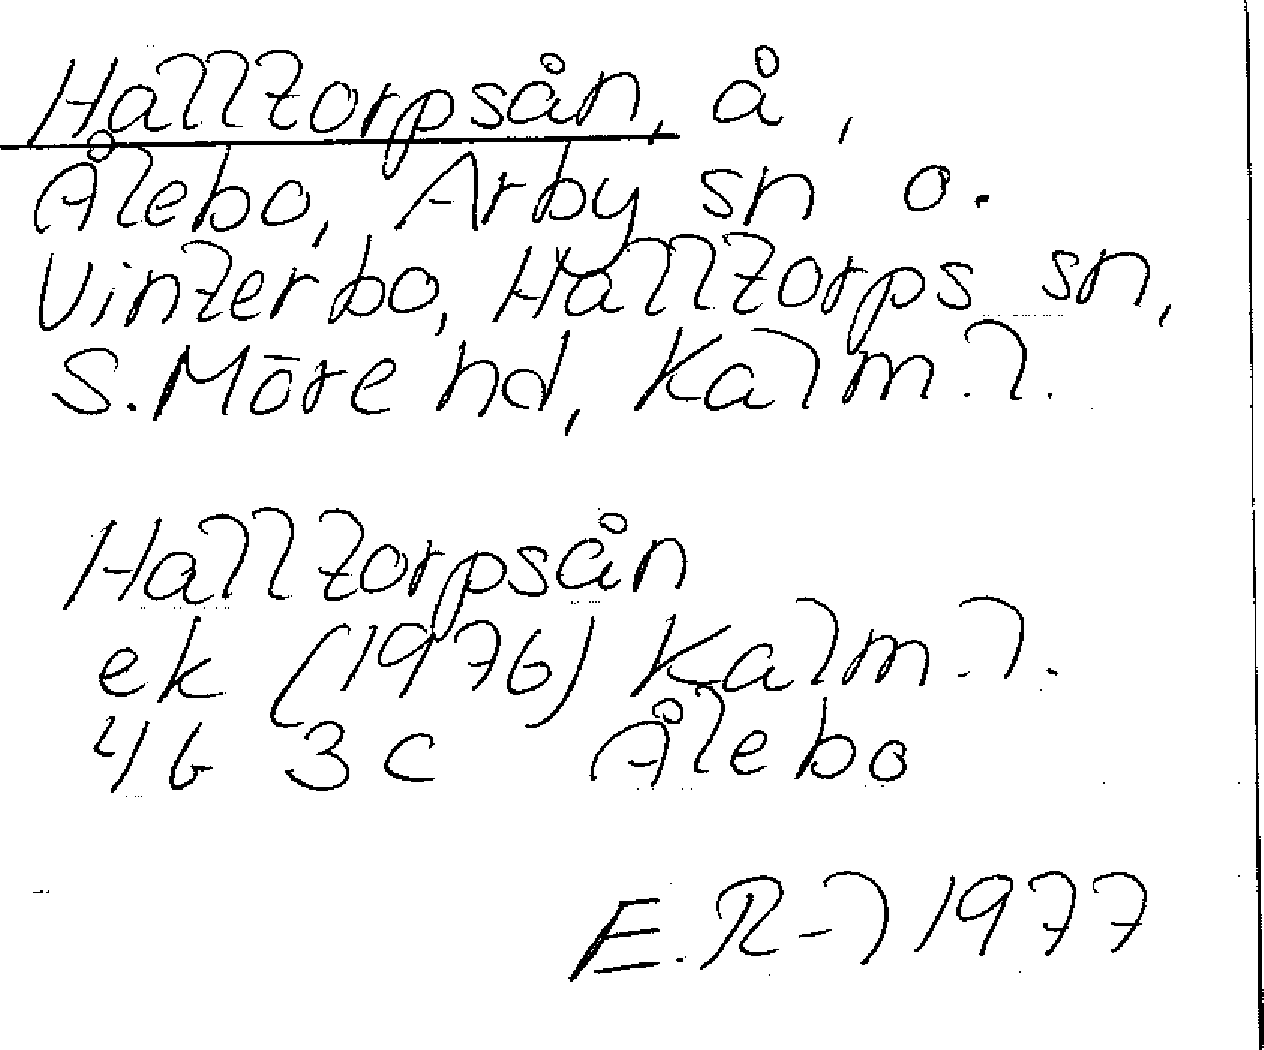 Halltorpsån, å,
Ålebo, Arby sn o.
Vinterbo, Halltorps sn,
S. Möre hd, Kalm. l.
Halltorpsån
ek (1976) Kalm. l.
4G 3c Ålebo
E. R-l 1977